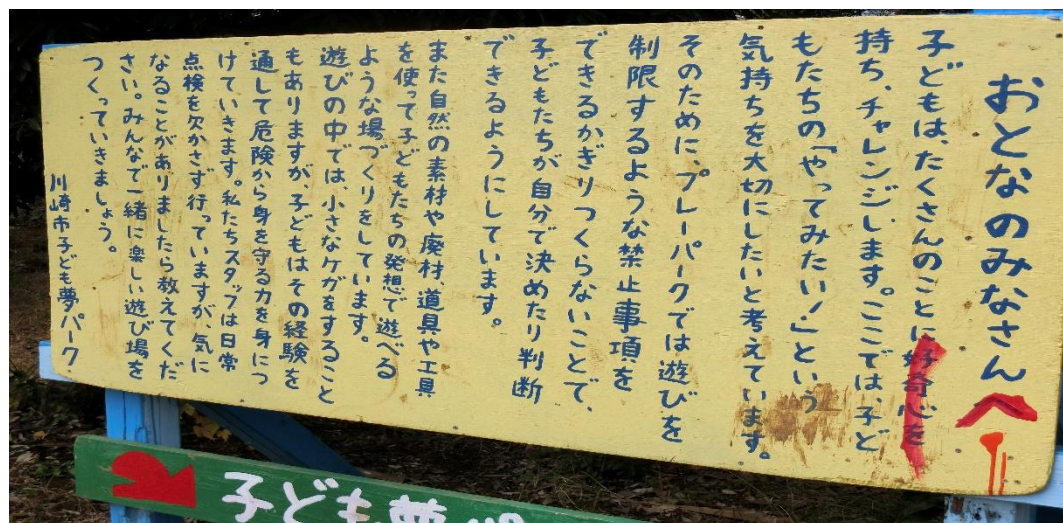 おとなのみなさんへ
子どもは、たくさんのことに好奇心を
持ち、チャレンジします。ここでは、子ど
もたちの「やってみたい！」という
気持ちを大切にしたいと考えています。
そのために、プレーパークでは遊びを
制限するような禁止事項を
できるかぎりつくらないことで、
子どもたちが自分で決めたり判断
できるようにしています。
また自然の素材や廃材、道具や工具
を使って子どもたちの発想で遊べる
ような場づくりをしています。
遊びの中では、小さなケガをすること
もありますが、子どもはその経験を
通して危険から身を守る力を身につ
けていきます。私たちスタッフは日常
点検を欠かさず行っていますが、気に
なることがありましたら教えてくだ
さい。みんなで一緒に楽しい遊び場を
つくっていきましょう。
川崎市子ども夢パーク
子ども夢パ